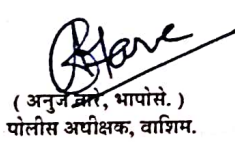 ( अनुज तारे, भापोसे. )
पोलीस अधीक्षक, वाशिम.